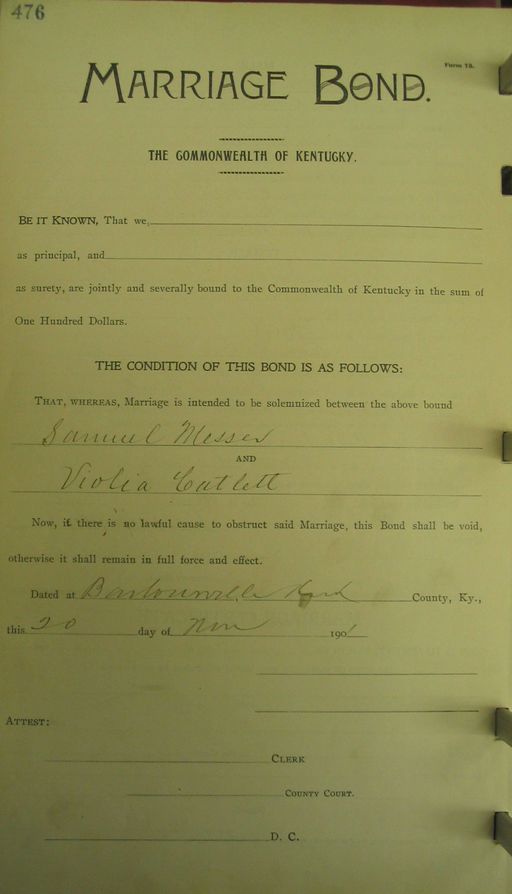 476
Form 75.
MARRIAGE BOND.
THE COMMONWEALTH OF KENTUCKY.
BE IT KNOWN, That we,
as principal, and
as surety, are jointly and severally bound to the Commonwealth of Kentucky in the sum of
One Hundred Dollars.
THE CONDITION OF THIS BOND IS AS FOLLOWS:
THAT, WHEREAS, Marriage is intended to be solemnized between the above bound
Samuel Messer
AND
Violia Catlett
Now, if there is no lawful cause to obstruct said Marriage, this Bond shall be void,
otherwise it shall remain in full force and effect.
Dated at Barbourville, Knox County, Ky.,
this 20 day of Nov 1901
ATTEST:
CLERK
COUNTY COURT.
D. C.